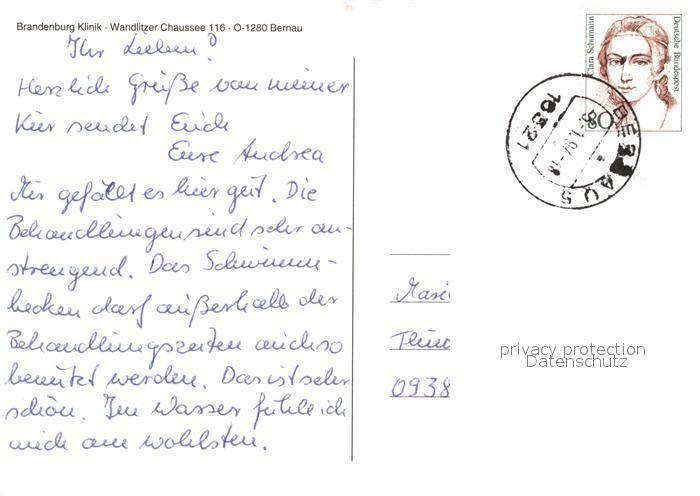 Brandenburg Klinik · Wandlitzer Chaussee 116 · O-1280 Bernau
Ihr Lieben!
Herzlich Grüße von meiner
Kur sendet Euch
Eure Andrea
Mir gefällt es hier gut. Die
Behandlungen sind sehr an-
strengend. Das Schwimm-
becken darf außerhalb der
Behandlungszeiten auch so
benutzt werden. Das ist sehr
schön. Im Wasser fühle ich
mich am wohlsten.
Clara Schumann
Deutsche Bundespost
80
16321
0938
privacy protection
Datenschutz